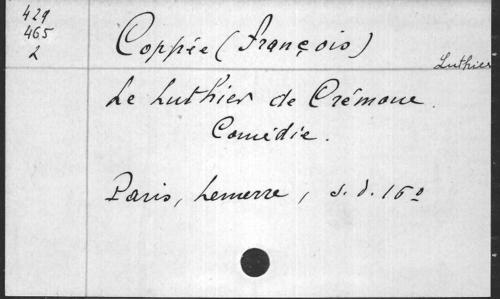 429
465
2
Coppée (François)
Luthier
Le Luthier de Crémone.
Comédie.
Paris, Lemerre, s.d. 16º